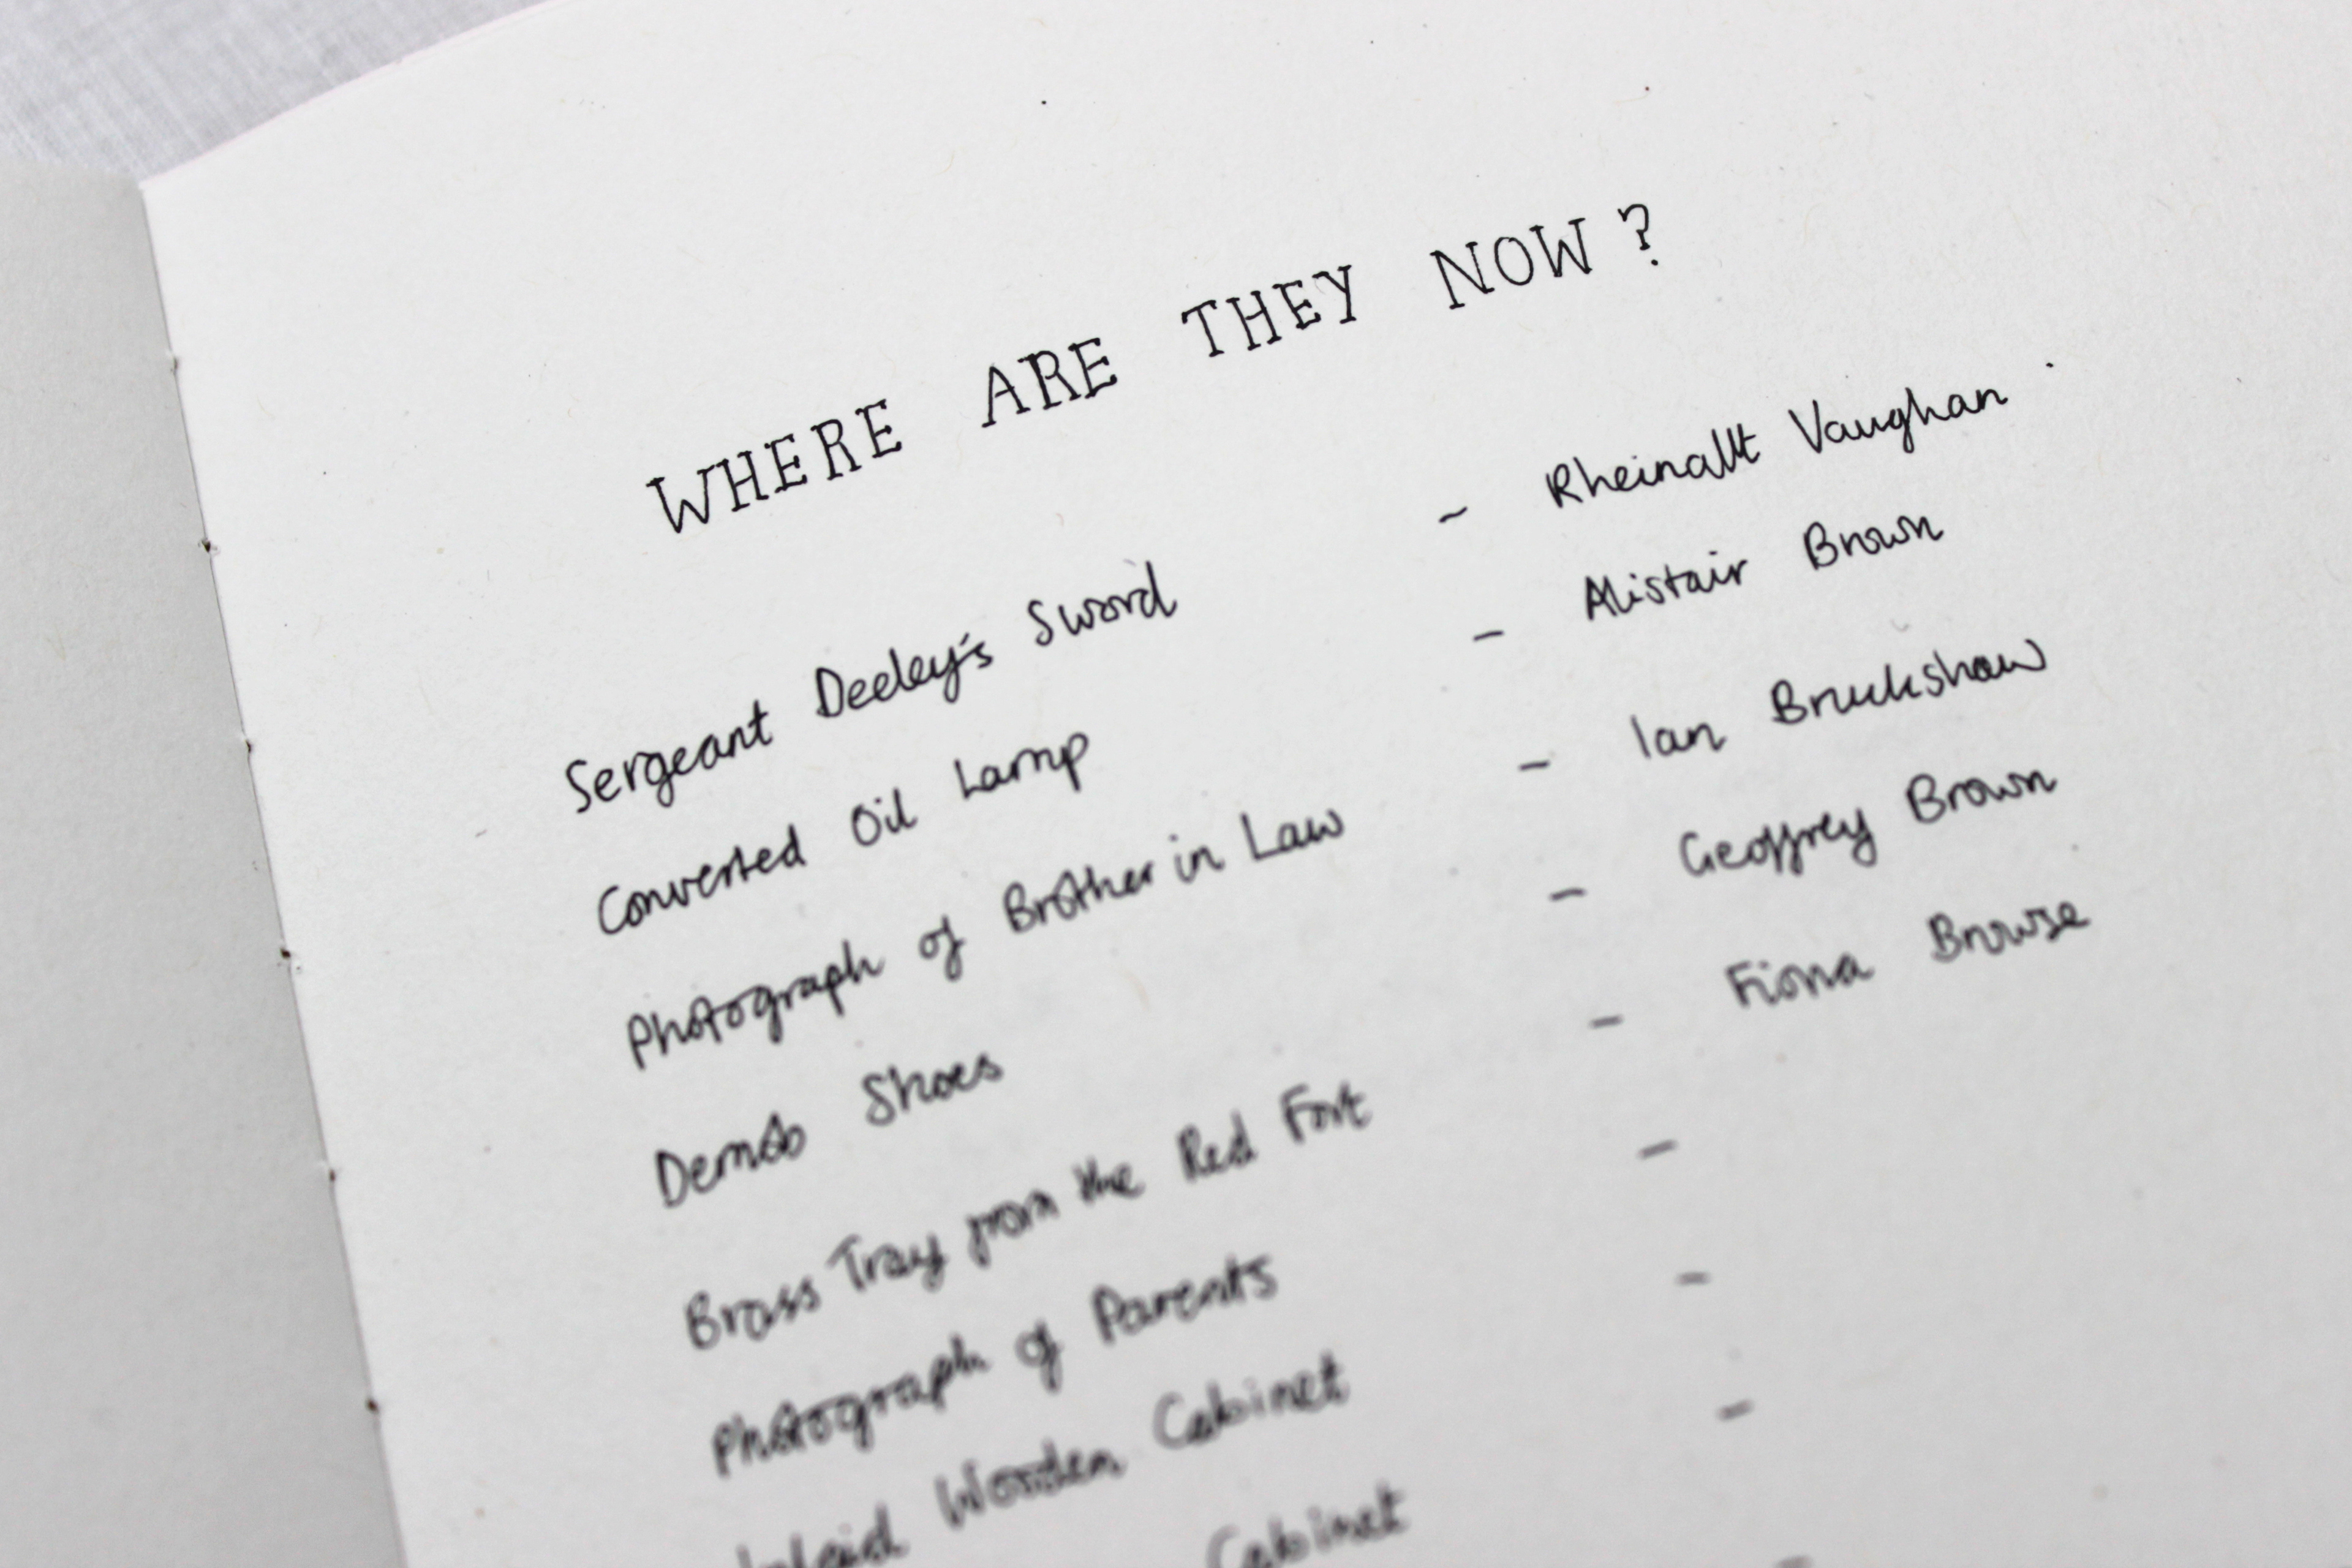 WHERE ARE THEY NOW?
Sergeant Deeley's Sword - Rheinallt Vaughan
Converted Oil Lamp - Alistair Brown
Photograph of Brother in Law - Ian Bruckshaw
Demob Shoes - Geoffrey Brown
Brass Tray from the Red Fort - Fiona Browse
Photograph of Parents -
Inlaid Wooden Cabinet -
Cabinet -